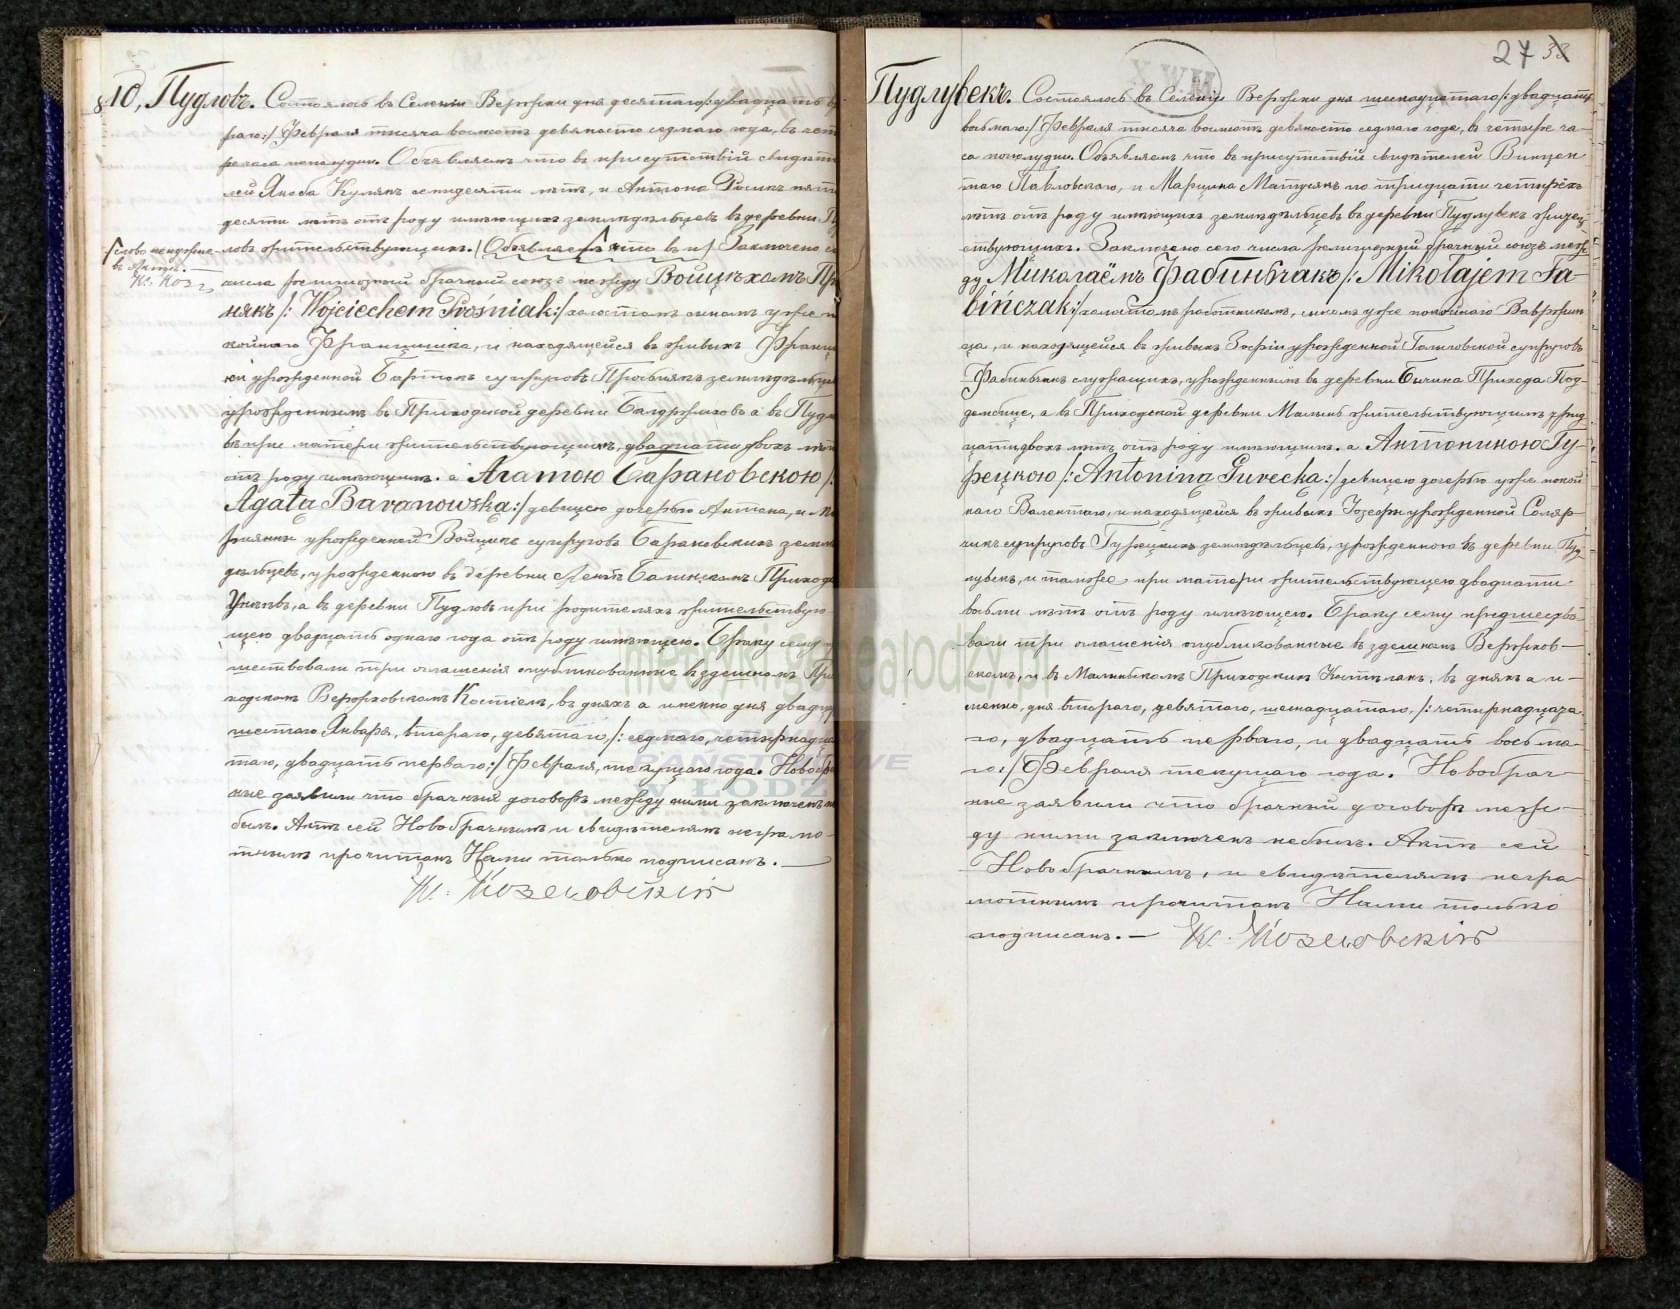 10, Пудловъ. Состоялось въ Селеніи Вержхи дня десятаго/:двадцать
раго:/ Февраля тысяча восмсотъ девяносто седмаго года, въ
часа пополудни. Объявляемъ что въ присутствіи свидѣте
лей Якоба Кулякъ семидесяти лѣтъ, и Антона
десяти лѣтъ отъ роду имѣющихъ земледѣльцевъ въ деревни
ловъ жительствующихъ. /Объявляемъ что въ п/ Заключено
слово ненужне
въ Актѣ.
К. Коз
числа религіозный брачный союзъ между Войцѣхомъ Пр
някъ /: Wojciechem Prośniak:/ холостымъ сыномъ уже
койнаго Францишка, и находящейся в живыхъ Франц
ки урожденной Бартокъ супруговъ Просьнякъ земледѣльц
урожденнымъ въ Приходской деревни Балдржиховъ а въ Пудл
вѣ при матери жительствующимъ, двадцати двохъ лѣтъ
отъ роду имѣющимъ. а Агатою Барановскою /:
Agatą Baranowską:/ девицею дочерью Антона, и
рянны урожденной Войцикъ супруговъ Барановскихъ земле
дѣльцевъ, урожденною въ деревни Балинскомъ Прихода
Унѣевъ, а въ деревни Пудловъ при родителяхъ жительствую-
щею двадцать однаго года отъ роду имѣющею. Браку сему
шествовали три оглашенія опубликованные въ здешномъ При
ходскомъ Вержховскомъ Костелѣ, въ дняхъ а именно дня двадц
шестаго Января, втораго, девятаго, /: седмаго, четырнадца
таго, двадцать перваго:/ Февраля, текущаго года. Новобра
ные заявили что брачный договоръ между ними заключенъ
былъ. Актъ сей Новобрачнымъ и свидѣтелямъ неграмо-
тнымъ прочитанъ Нами только подписанъ. —
К. Козловскій
27 38
M.W.X
Пудлувекъ. Состоялось въ Селеніи Вержхи дня шеснадцатаго/:двадцать
восьмаго:/ Февраля тысяча восмсотъ девяносто седмаго года, в четыре ча-
са пополудни. Объявляемъ что въ присутствіи свидѣтелей Винцен
таго Павловскаго, и Марцина Матусякъ по тридцати четырёхъ
лѣтъ отъ роду имѣющихъ земледѣльцевъ въ деревни Пудлувекъ жител-
ствующихъ. Заключено сего числа религіозный брачный союзъ меж-
ду Миколаёмъ Фабиньчакъ /: Mikołajem Fa-
bińczak:/ холостымъ работникомъ, сыномъ уже покойнаго Вавржин
ца, и находящейся въ живыхъ Зофіи урожденной Гашовской супруговъ
Фабиньчакъ служащихъ, урожденнымъ въ деревни Бычина Прихода Под-
дембице, а въ Приходской деревни Малынь жительствующимъ трид
цатидвохъ лѣтъ отъ роду имѣющимъ. а Антониною Гу-
рецкою /: Antoniną Gurecką:/ девицею дочерью уже покой
наго Валентаго, и находящейся въ живыхъ Юзефы урожденной Соляр-
чикъ супруговъ Гурецкихъ земледѣльцевъ, урожденною въ деревни Пуд
лувекъ, и тамже при матери жительствующею двадцати
восьми лѣтъ отъ роду имѣющею. Браку сему предшество-
вали три оглашенія опубликованные въ здешномъ Вержхов-
скомъ, и въ Малыньскомъ Приходскихъ Костелахъ, въ дняхъ а и-
менно, дня втораго, девятаго, шеснадцатаго, /: четырнадцата
го, двадцать перваго, и двадцать восьма-
го:/ Февраля текущаго года. Новобрач-
ные заявили что брачный договоръ меж-
ду ними заключенъ небылъ. Актъ сей
Новобрачнымъ, и свидѣтелямъ негра-
мотнымъ прочитанъ Нами только
подписанъ. — К. Козловскій
metryki.genealodzy.pl
ARCHIWUM
PAŃSTWOWE
W ŁODZI